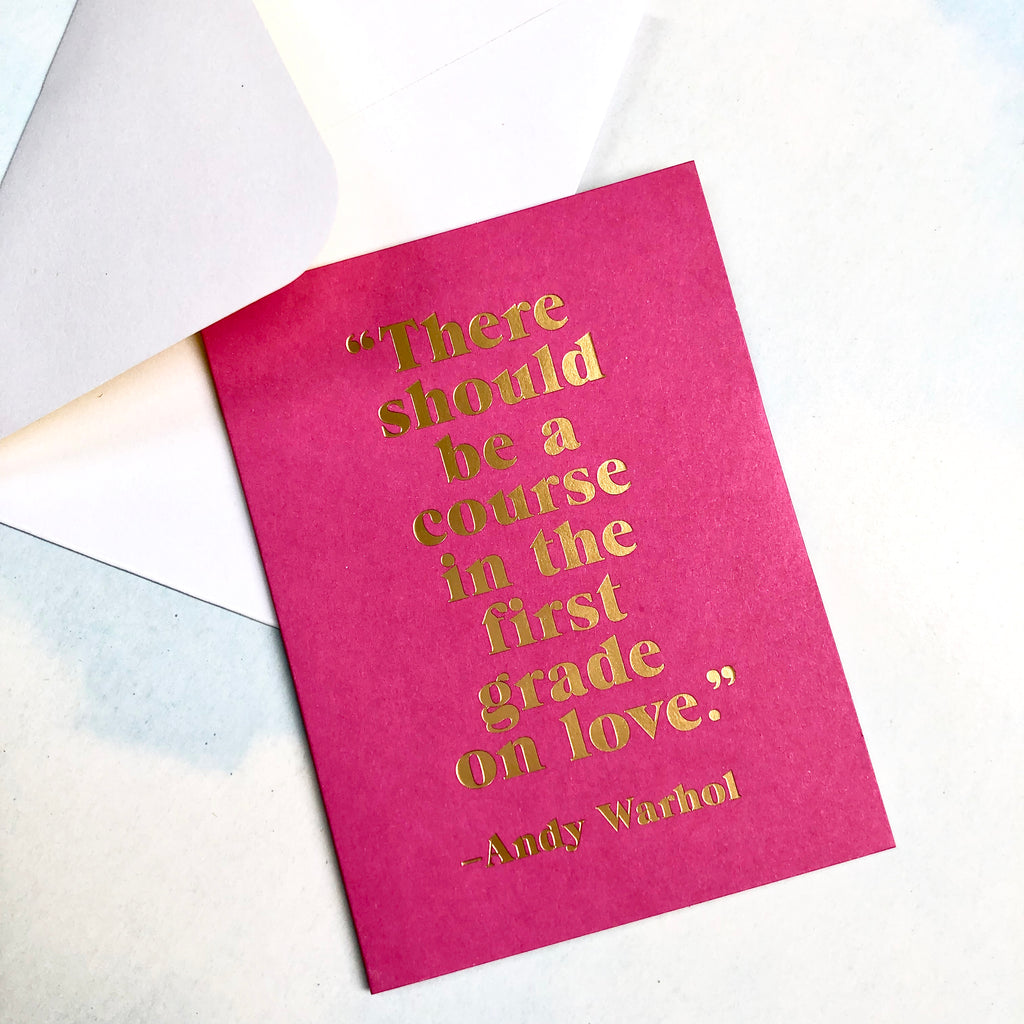 “There
should
be a
course
in the
first
grade
on love.”
–Andy Warhol